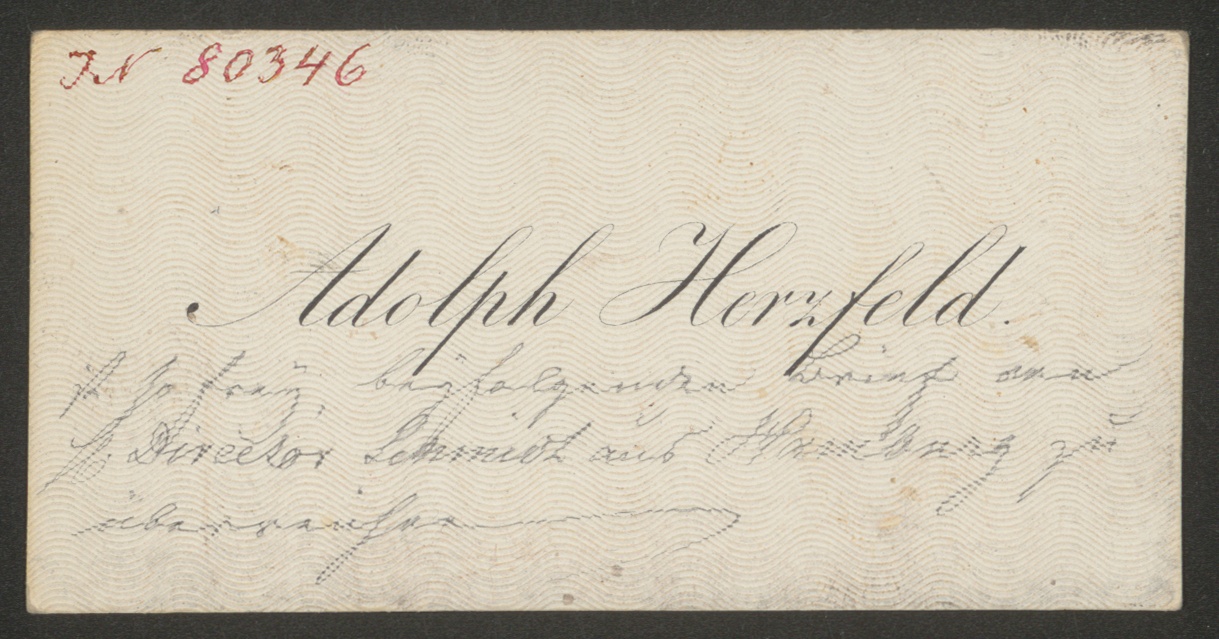 IN 80346
Adolph Herzfeld.
ist so frey, beyfolgenden Brief von
H. Director Schmidt aus Hamburg zu
überreichen